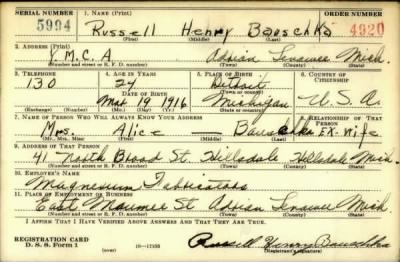 SERIAL NUMBER 1. NAME (Print) ORDER NUMBER
5994 Russell Henry Bauschka 4920
(First) (Middle) (Last)
2. ADDRESS (Print)
Y.M.C.A Adrian Lenawee Mich.
(Number and street or R. F. D. number) (Town) (County) (State)
3. TELEPHONE 4. AGE IN YEARS 5. PLACE OF BIRTH 6. COUNTRY OF CITIZENSHIP
130 24 Detroit
DATE OF BIRTH (Town or county)
Mar 19 1916 Michigan U.S.A.
(Exchange) (Number) (Mo.) (Day) (Yr.) (State or country)
7. NAME OF PERSON WHO WILL ALWAYS KNOW YOUR ADDRESS 8. RELATIONSHIP OF THAT PERSON
Mrs. Alice Bauschka EX-Wife
(Mr., Mrs., Miss) (First) (Middle) (Last)
9. ADDRESS OF THAT PERSON
41 North Broad St. Hillsdale Hillsdale Mich.
(Number and street or R. F. D. number) (Town) (County) (State)
10. EMPLOYER'S NAME
Magnesium Fabricators
11. PLACE OF EMPLOYMENT OR BUSINESS
East Maumee St Adrian Lenawee Mich
(Number and street or R. F. D. number) (Town) (County) (State)
I AFFIRM THAT I HAVE VERIFIED ABOVE ANSWERS AND THAT THEY ARE TRUE.
REGISTRATION CARD
D. S. S. Form 1 16—17105 Russell Henry Bauschka
(Registrant's signature)